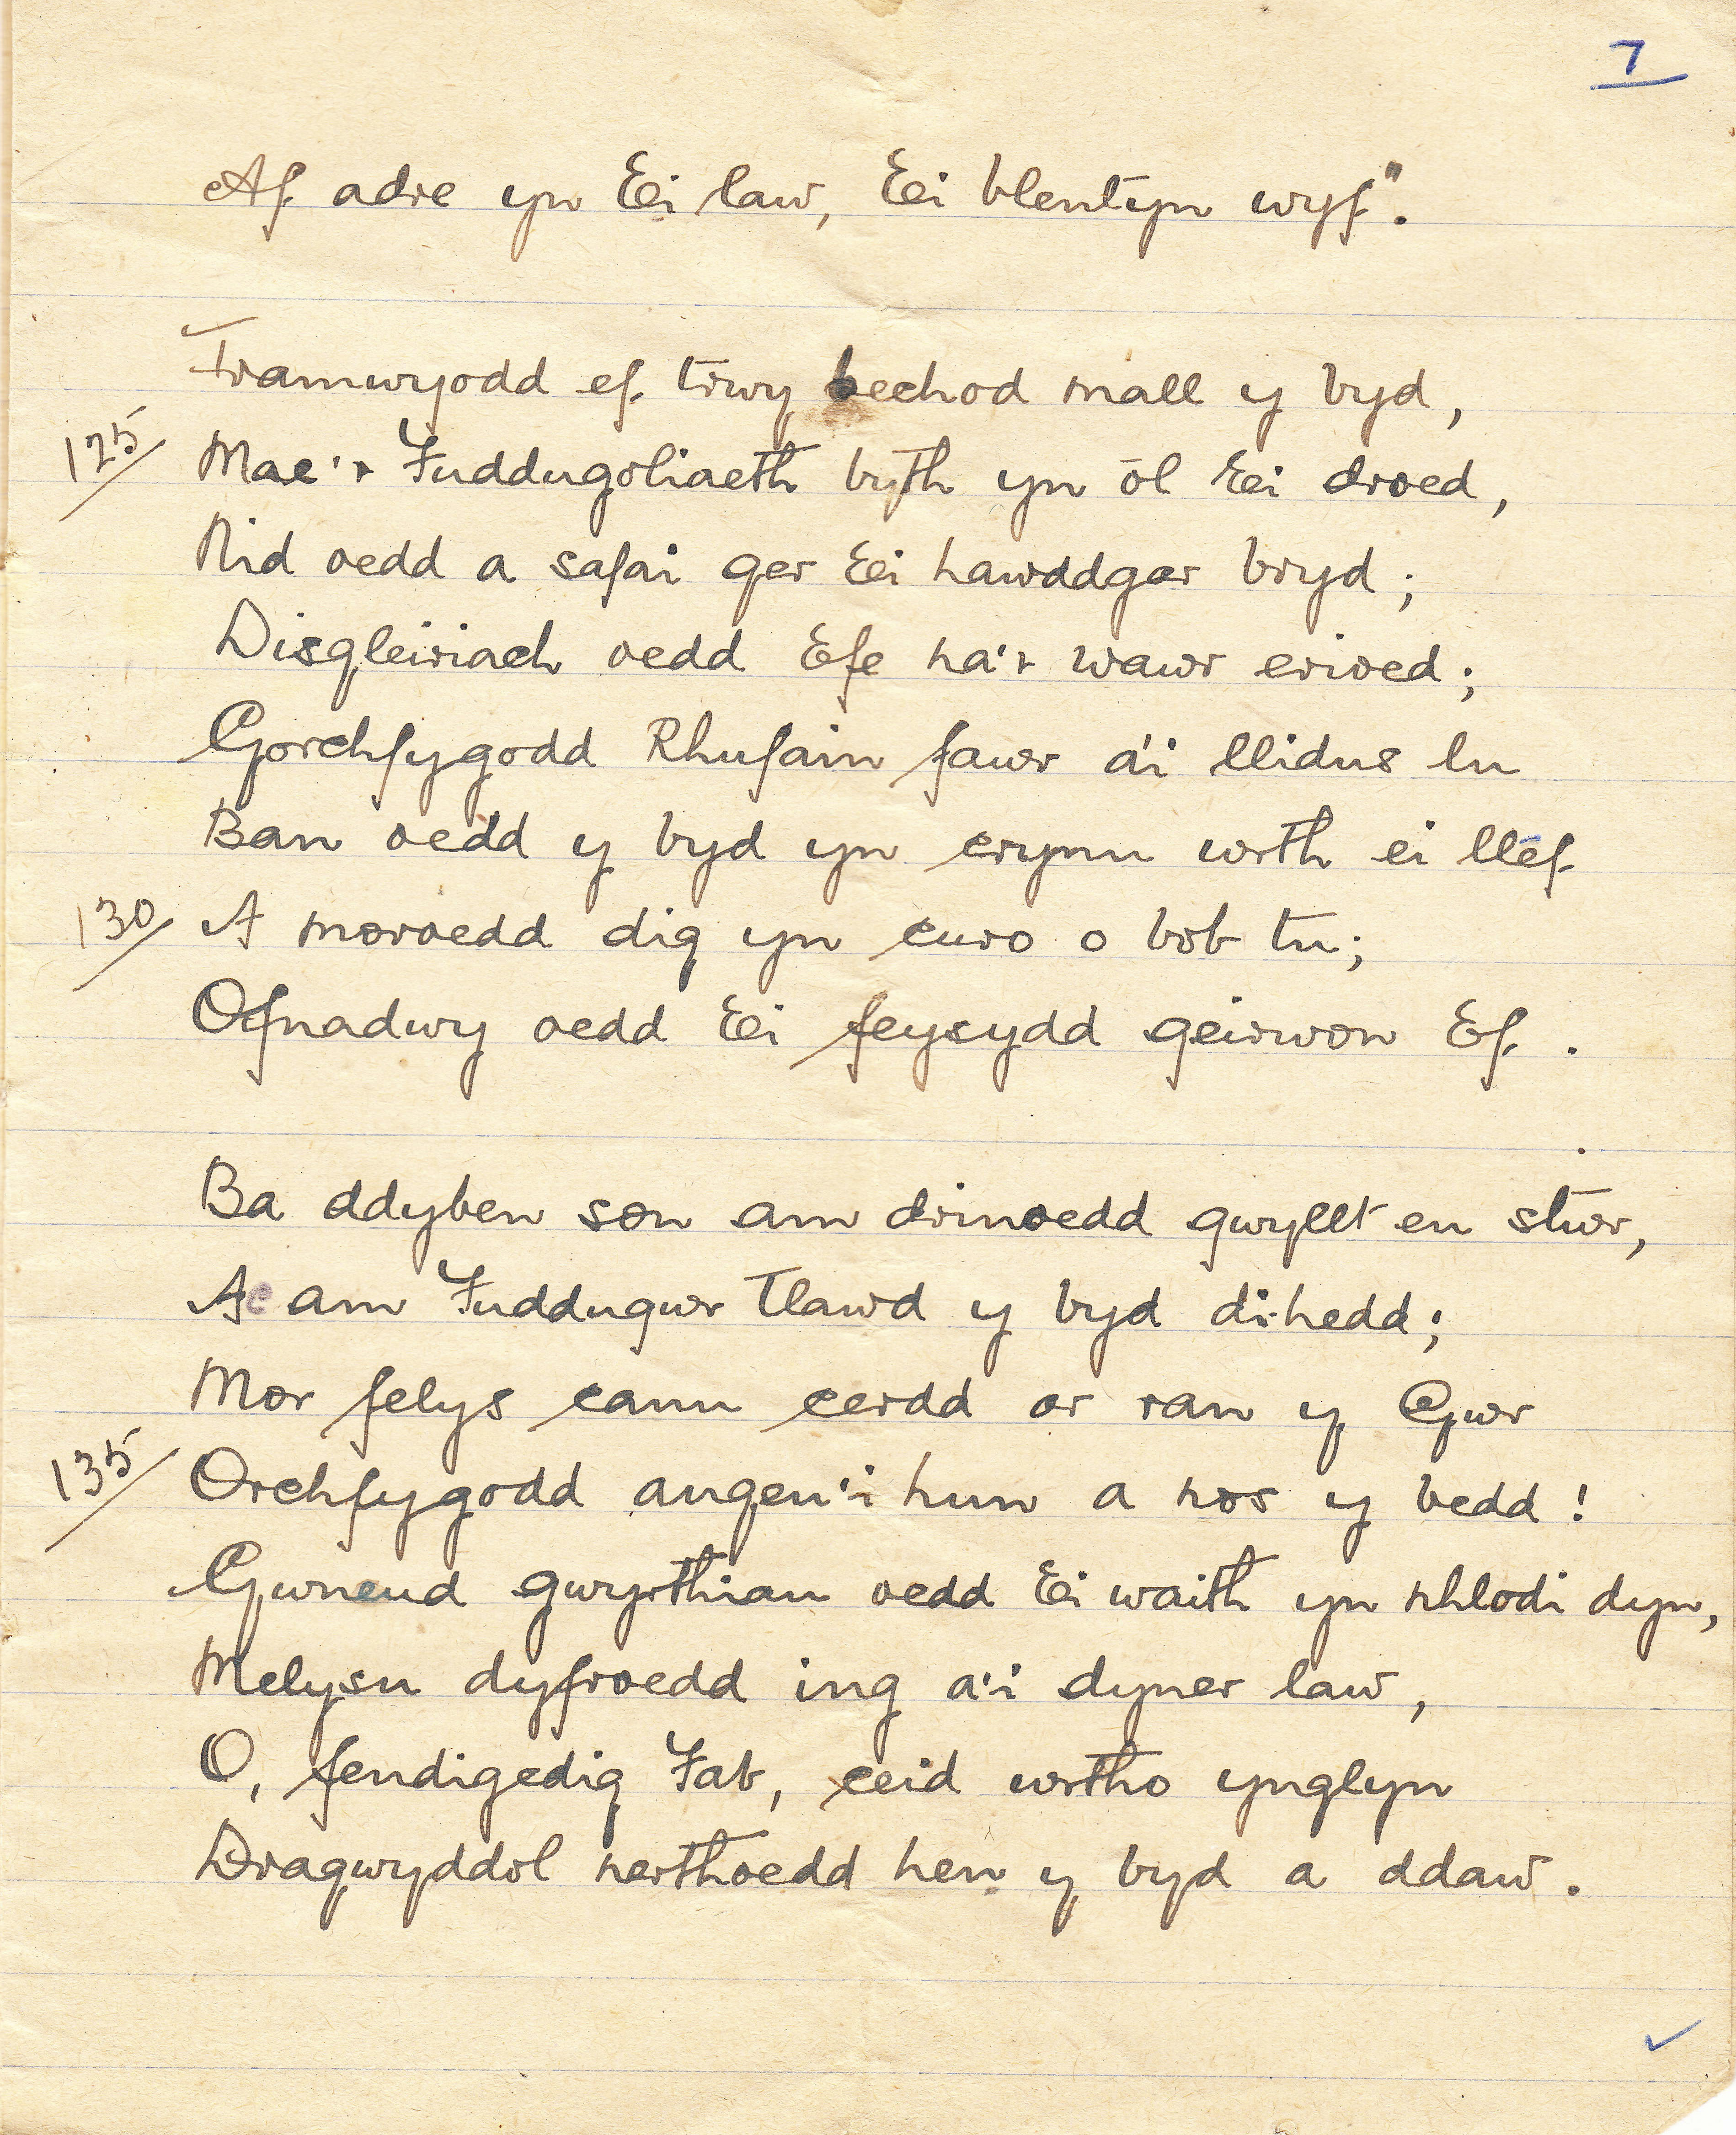 7
Af adre yn Ei law, Ei blentyn wyf".
Tramwyodd ef trwy bechod mall y byd,
125/ Mae'r Fuddugoliaeth byth yn ôl Ei droed,
Nid oedd a safai ger Ei hawddgar bryd;
Disgleiriach oedd Efe na'r wawr erioed;
Gorchfygodd Rhufain fawr a'i llidus lu
Ban oedd y byd yn crynu wrth ei llef
130/ A moroedd dig yn curo o bob tu;
Ofnadwy oedd Ei feysydd geirwon Ef.
Ba ddyben son am drinoedd gwyllt eu stwr,
Ac am Fuddugwr Tlawd y byd di-hedd;
Mor felys canu cerdd ar ran y Gwr
135/ Orchfygodd angeu'i hun a nos y bedd!
Gwneud gwyrthiau oedd Ei waith yn nhlodi dyn,
Melysu dyfroedd ing a'i dyner law,
O, fendigedig Fab, ceid wrtho ynglyn
Dragwyddol nerthoedd hen y byd a ddaw.